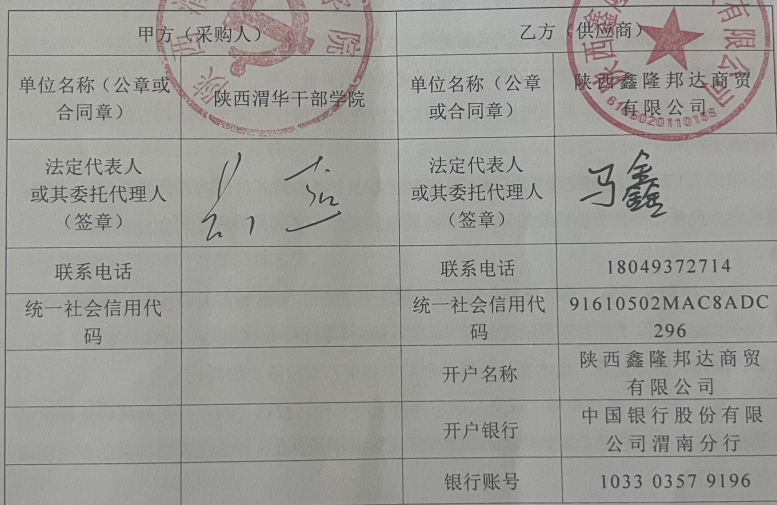 甲方（采购人）
乙方（供应商）
单位名称（公章或
合同章）
陕西渭华干部学院
单位名称（公章
或合同章）
陕西鑫隆邦达商贸
有限公司
6105020110138
法定代表人
或其委托代理人
（签章）
法定代表人
或其委托代理人
（签章）
马鑫
联系电话
联系电话
18049372714
统一社会信用代
码
统一社会信用代
码
91610502MAC8ADC
296
开户名称
陕西鑫隆邦达商贸
有限公司
开户银行
中国银行股份有限
公司渭南分行
银行账号
1033 0357 9196